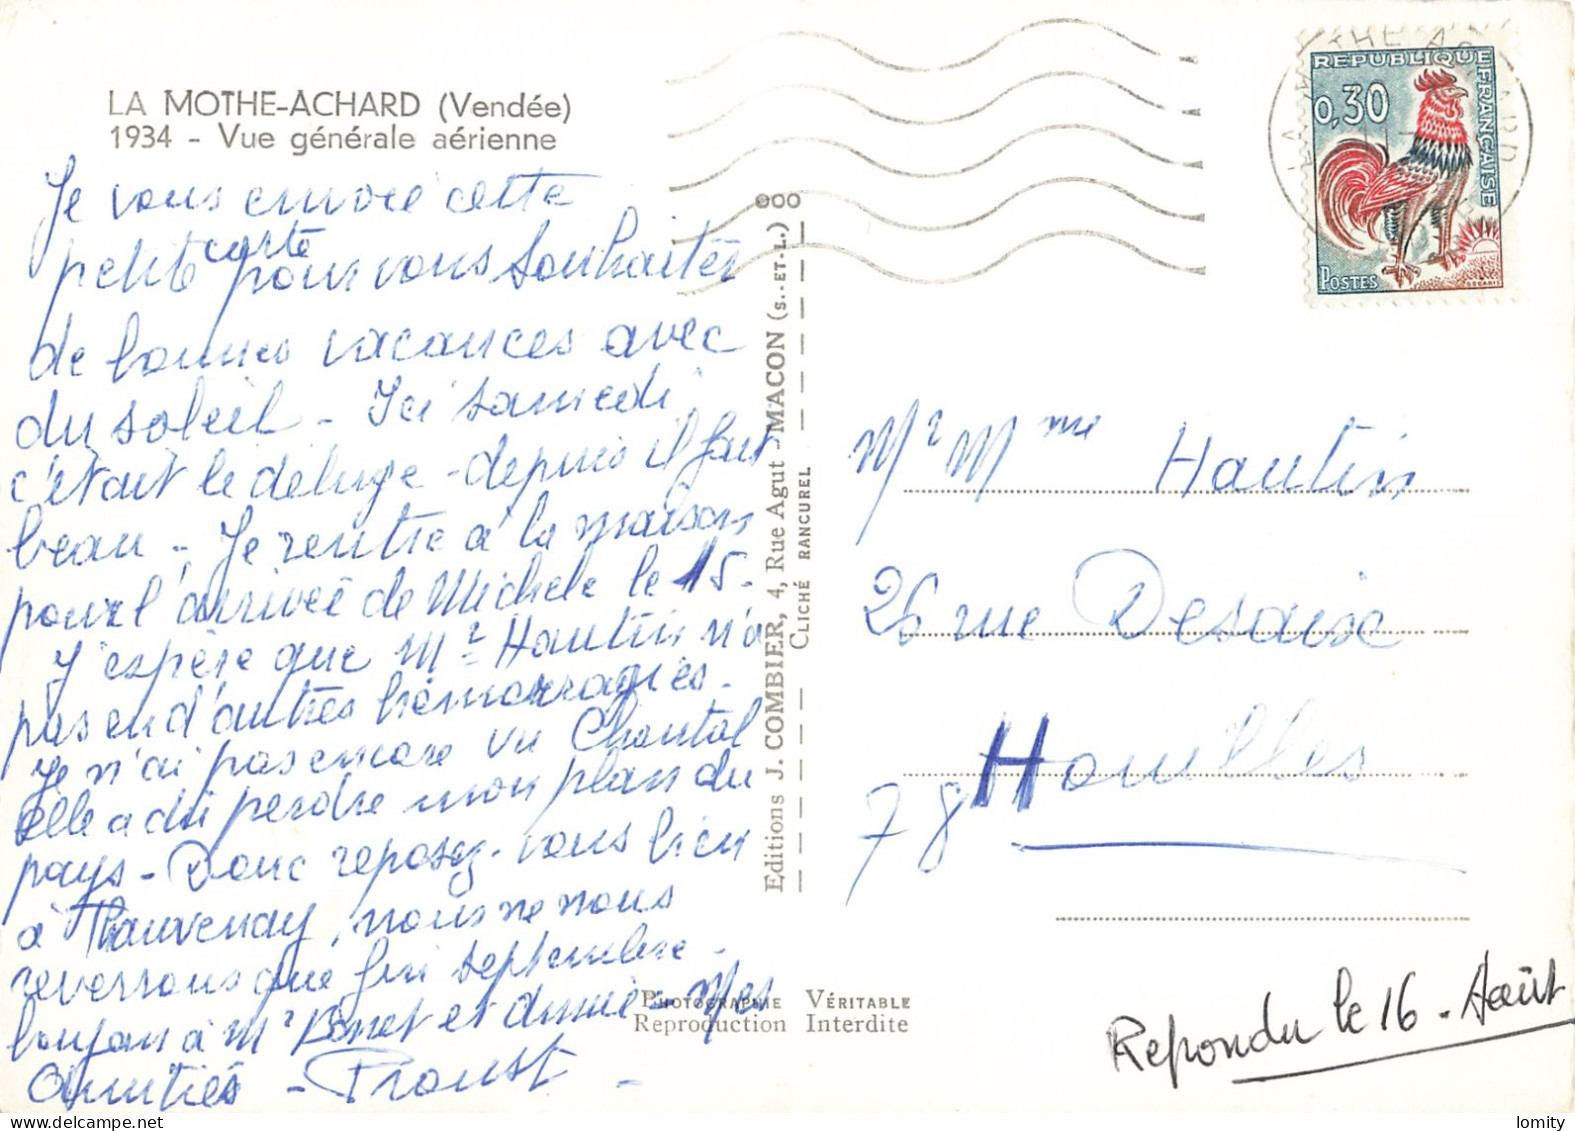 LA MOTHE-ACHARD (Vendée)
1934 - Vue générale aérienne
Je vous envoie cette
petite carte pour vous souhaiter
de bonnes vacances avec
du soleil - Ici samedi
c'était le déluge - depuis il fait
beau - Je rentre à la maison
pour l'arrivée de Michele le 15.
J'espère que Mr Hautin n'a
pas eu d'autres hémorragies.
Je n'ai pas encore vu Chantal
elle a du perdre mon plan du
pays - Donc reposez-vous bien
à Thauvenay, nous ne nous
reverrons que fin septembre.
bonjour à Mr Bonet et - Mes
Amitiés - Proust -
ooo
Editions J. COMBIER, 4, Rue Agut - MACON (S.-ET-L.)
CLICHÉ RANCUREL
PHOTOGRAPHIE VÉRITABLE
Reproduction Interdite
REPUBLIQUE FRANÇAISE
0,30
POSTES
DECARIS
LA MOTHE ACHARD
Mr Mme Hautin
26 rue Desaix
78 Houilles
Repondu le 16 - Août
lomity